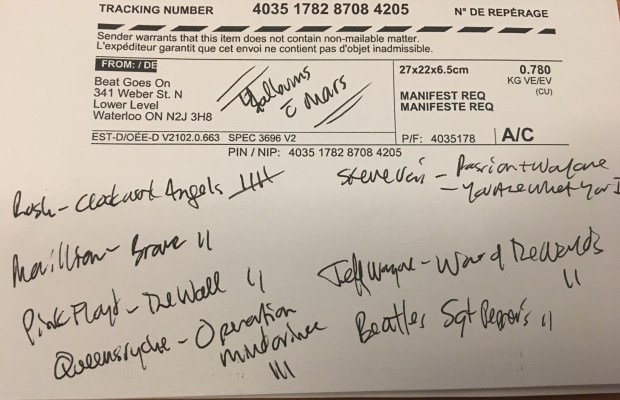 TRACKING NUMBER 4035 1782 8708 4205 N° DE REPÉRAGE
Sender warrants that this item does not contain non-mailable matter.
L'expéditeur garantit que cet envoi ne contient pas d'objet inadmissible.
FROM: / DE
Beat Goes On
341 Weber St. N
Lower Level
Waterloo ON N2J 3H8
Mars
27x22x6.5cm
0.780
KG VE/EV
(CU)
MANIFEST REQ
MANIFESTE REQ
EST-D/OÉE-D V2102.0.663 SPEC 3696 V2
P/F: 4035178
A/C
PIN / NIP: 4035 1782 8708 4205
Rush - Clockwork Angels
Marillion - Brave
Pink Floyd - The Wall
Queensryche - Operation
Mindcrime
Steve Vai - Passion + Warfare
Jeff Wayne - War of The Worlds
Beatles Sgt Peppers